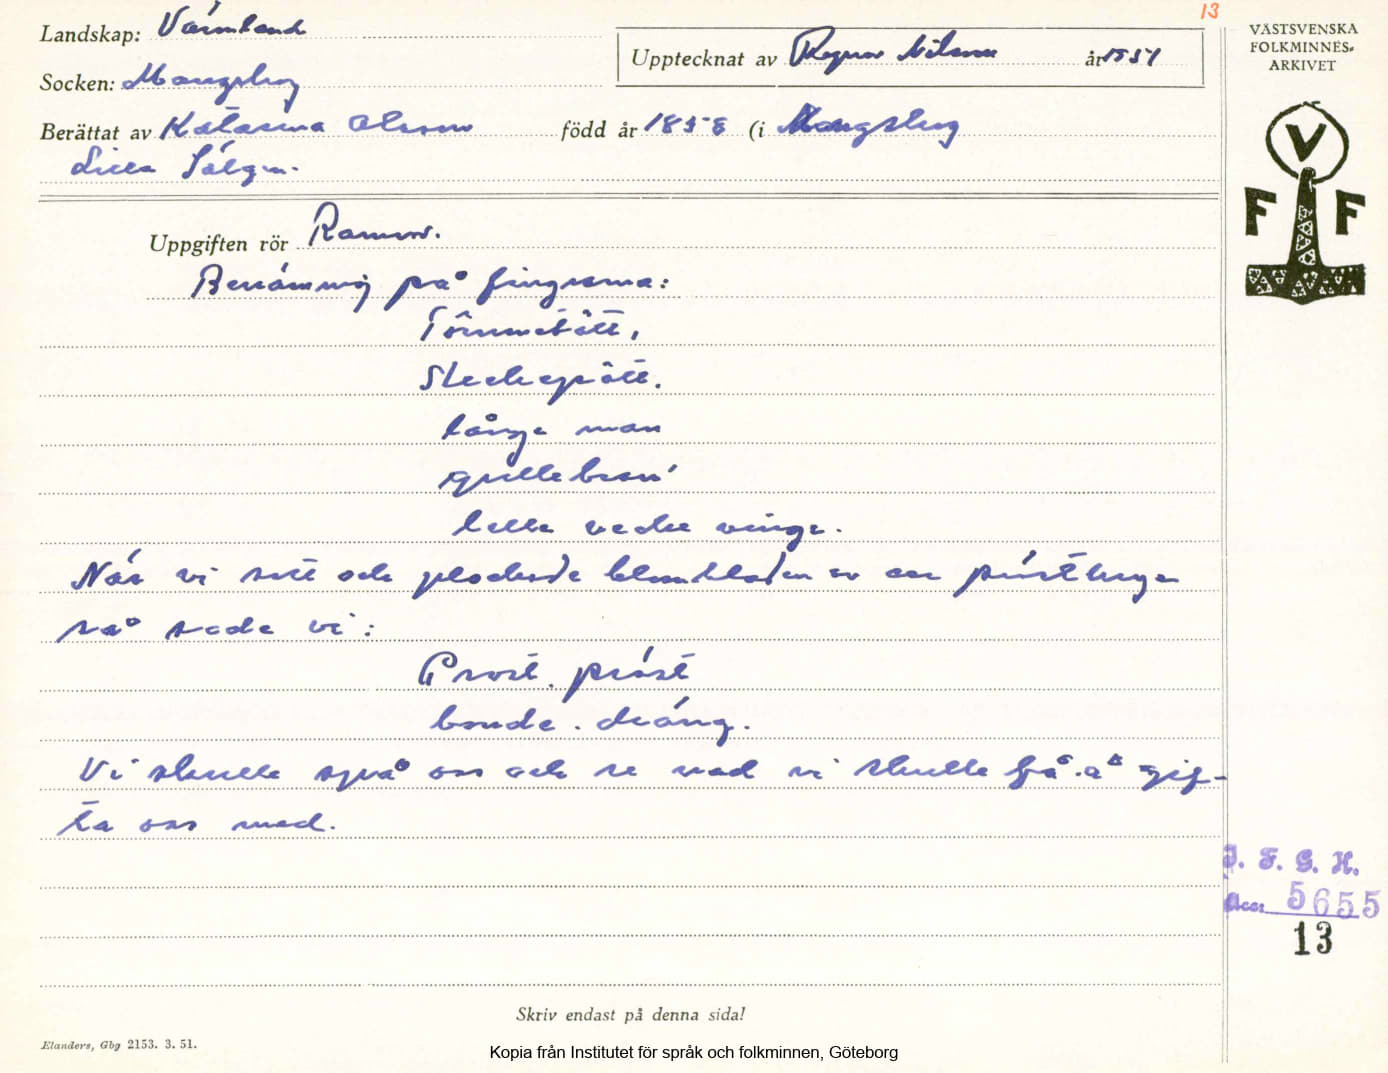 13
Landskap: Värmland
Upptecknat av Ragnar Nilsson år 1951
Socken: Mangskog
Berättat av Katarina Olsson född år 1858 (i Mangskog
Lilla Sälgn.
VÄSTSVENSKA
FOLKMINNES-
ARKIVET
V
F F
Uppgiften rör Ramsor.
Benämning på fingrarna:
Tömmetått,
Sleckepått.
långe man
gullebran
lelle vecke vinge.
När vi satt och plockade blombladen av en prästkrage
så sade vi:
Prost. präst
bonde. dräng.
Vi skulle spå oss och se vad vi skulle få. å gif-
ta oss med.
I. F. G. H.
Acc: 5655
13
Skriv endast på denna sida!
Elanders, Gbg 2153. 3. 51.
Kopia från Institutet för språk och folkminnen, Göteborg